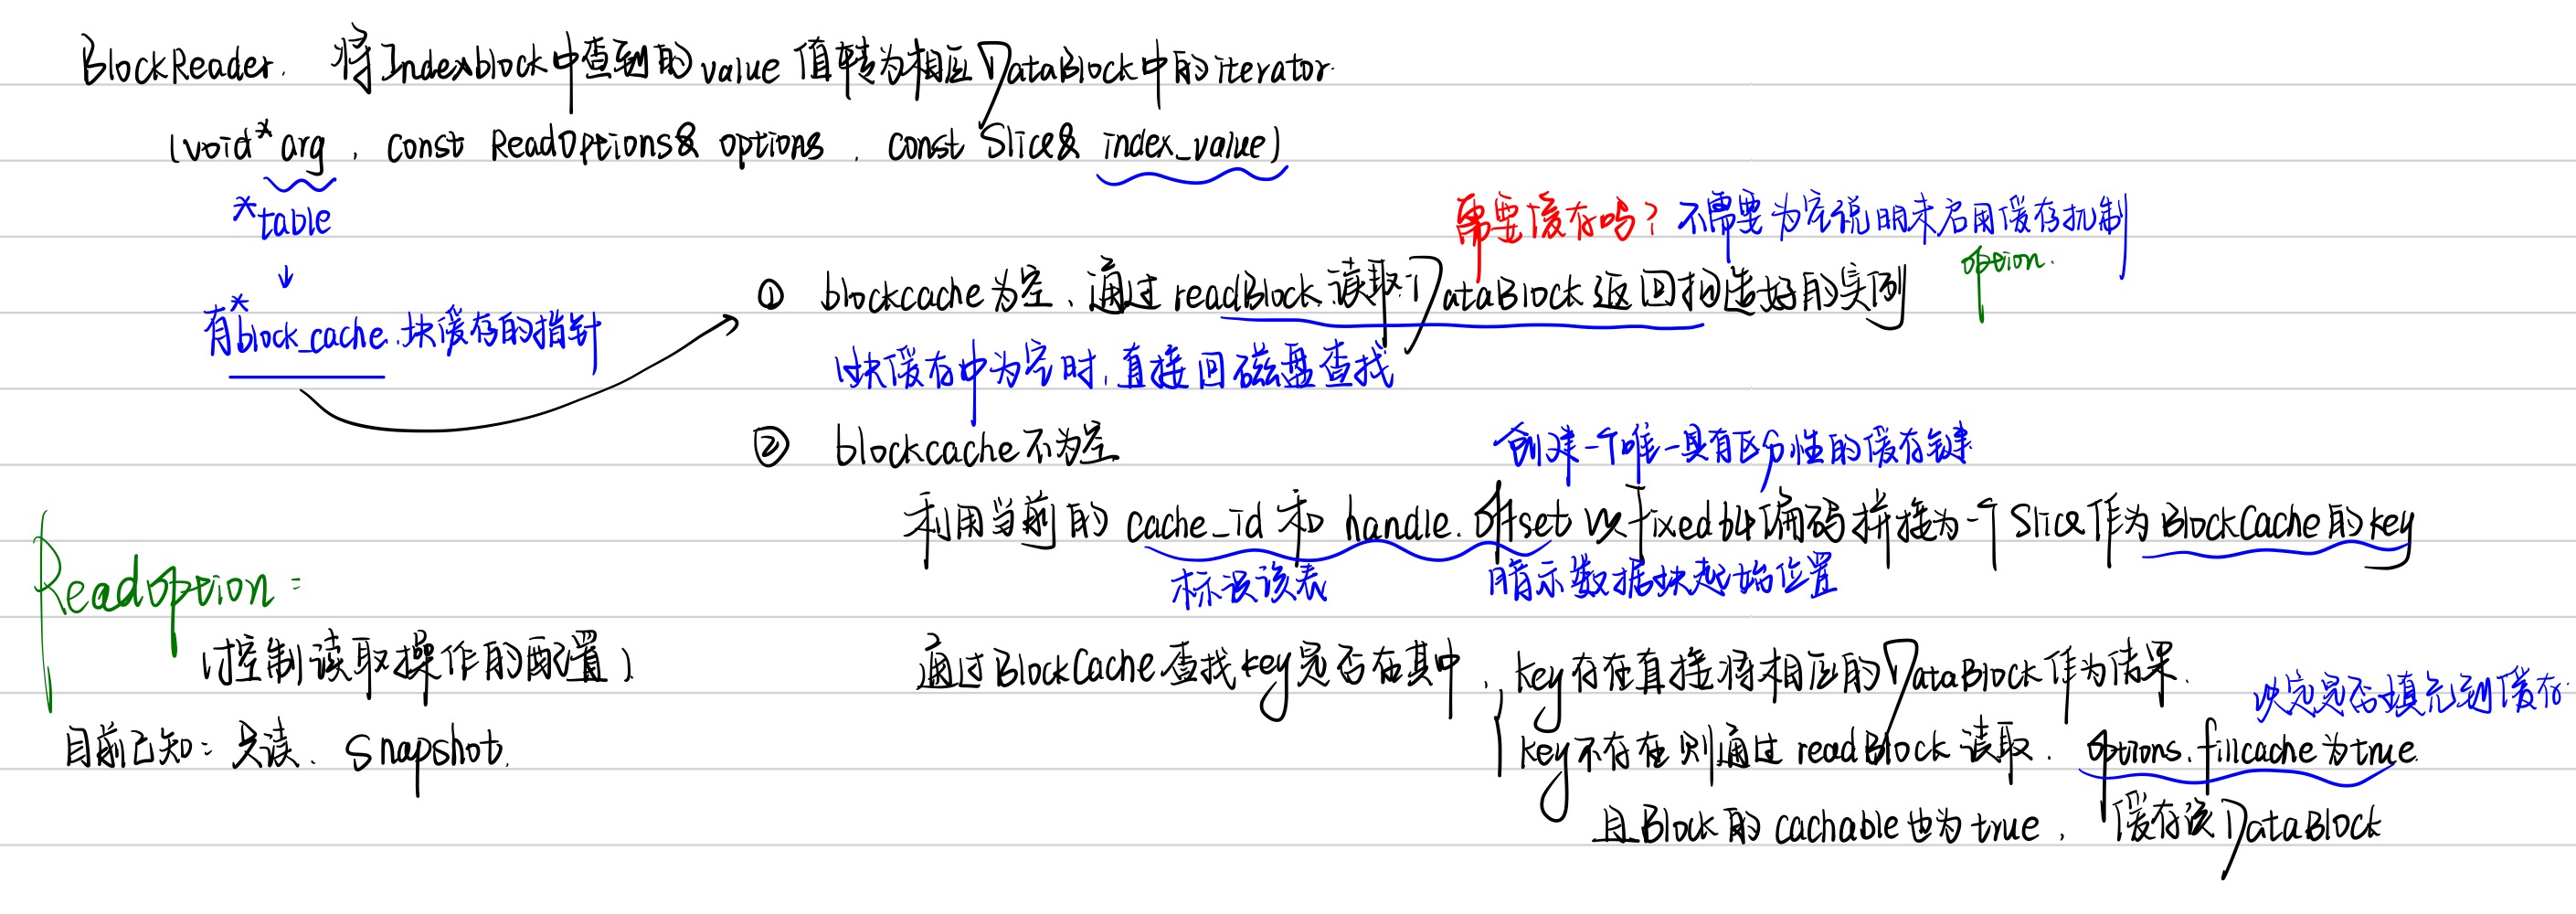 BlockReader. 将Indexblock中查到的value 值转为相应DataBlock中的iterator.
(void* arg, const ReadOptions& options, const Slice& index_value)
*table
↓
有*block_cache.块缓存的指针
需要缓存吗? 不需要 为空说明未启用缓存机制
option.
① blockcache为空、通过readBlock读取DataBlock返回构造好的实例
块缓存中为空时,直接回磁盘查找
② blockcache不为空
创建一个唯一具有区分性的缓存键
利用当前的 cache_id 和 handle.offset 以fixed64编码拼接为一个Slice作为BlockCache的key
标识该表
暗示数据块起始位置
通过BlockCache查找key是否在其中, key存在直接将相应的DataBlock作为结果.
决定是否填充到缓存.
key不存在则通过readBlock读取. options.fillcache为true.
且Block的cachable也为true, 缓存该DataBlock
Readoption:
(控制读取操作的配置)
目前已知: 只读、Snapshot.